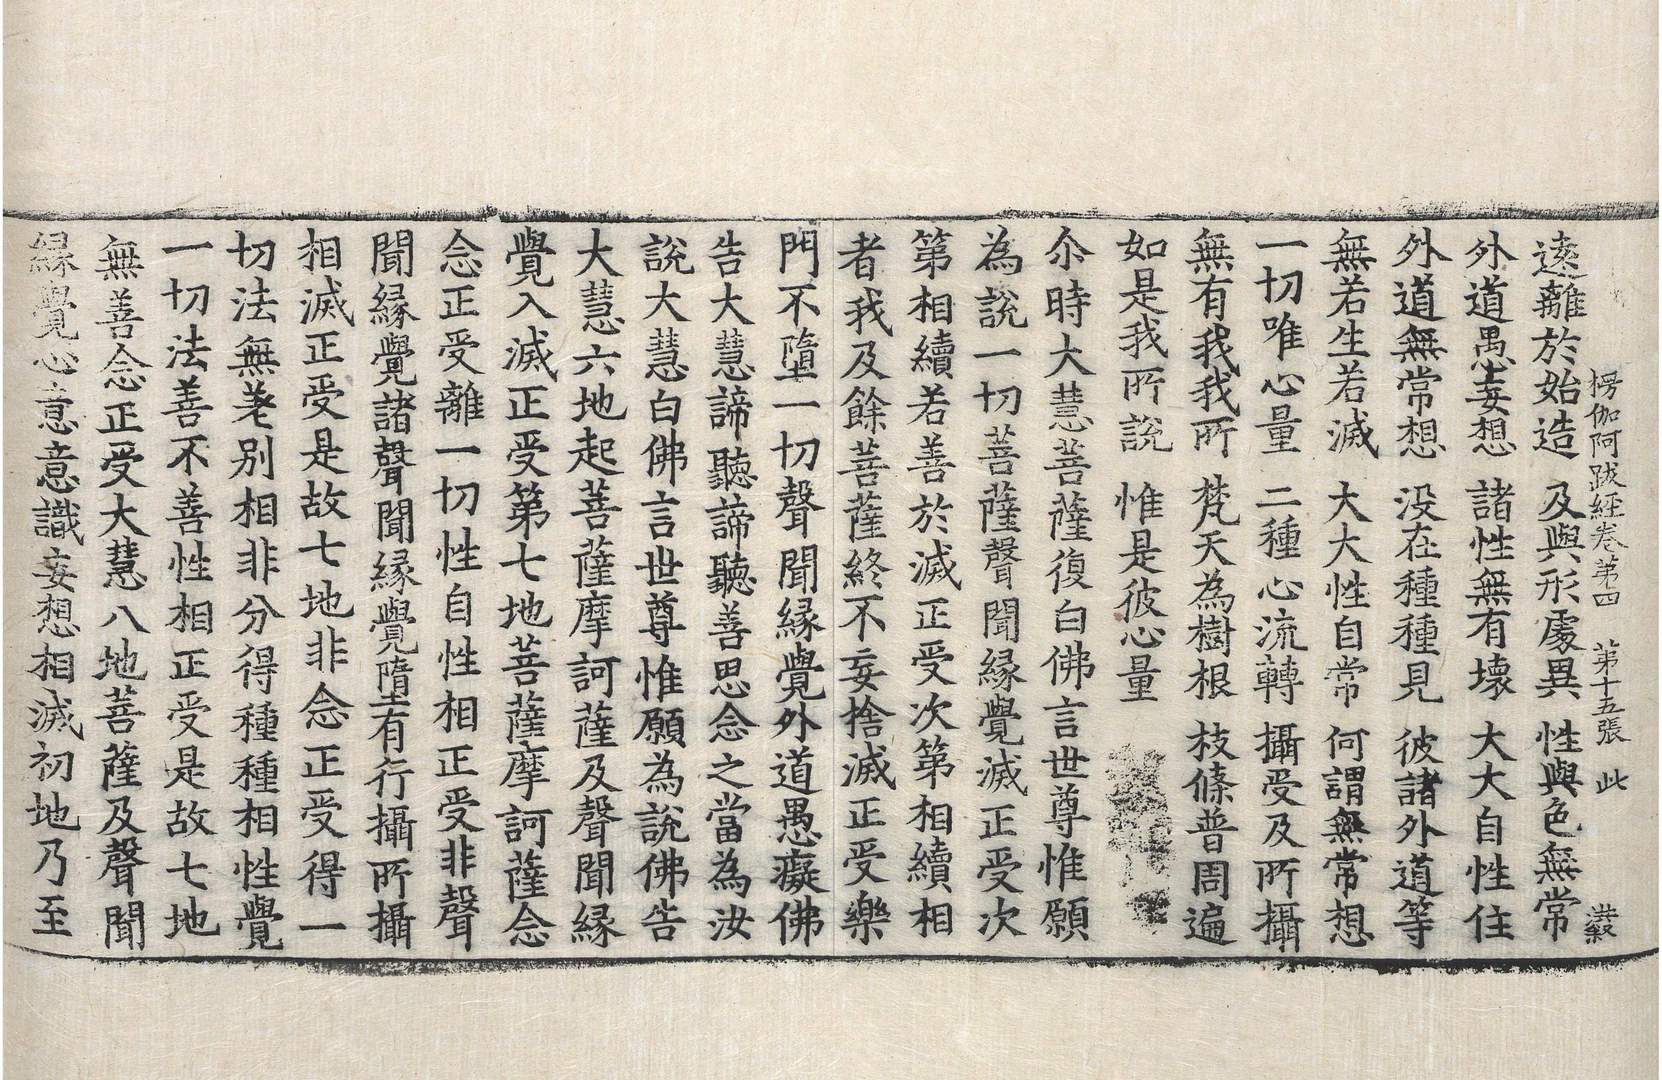 楞伽阿跋經卷第四　第十五張　此
遠離於始造　及與形處異　性與色無常
外道愚妄想　諸性無有壞　大大自性住
外道無常想　没在種種見　彼諸外道等
無若生若滅　大大性自常　何謂無常想
一切唯心量　二種心流轉　攝受及所攝
無有我我所　梵天為樹根　枝條普周遍
如是我所說　惟是彼心量
尒時大慧菩薩復白佛言世尊惟願
為說一切菩薩聲聞緣覺滅正受次
第相續若善於滅正受次第相續相
者我及餘菩薩終不妄捨滅正受樂
門不墮一切聲聞緣覺外道愚癡佛
告大慧諦聽諦聽善思念之當為汝
說大慧白佛言世尊惟願為說佛告
大慧六地起菩薩摩訶薩及聲聞緣
覺入滅正受第七地菩薩摩訶薩念
念正受離一切性自性相正受非聲
聞緣覺諸聲聞緣覺墮有行攝所攝
相滅正受是故七地非念正受得一
切法無差別相非分得種種相性覺
一切法善不善性相正受是故七地
無善念正受大慧八地菩薩及聲聞
緣覺心意意識妄想相滅初地乃至